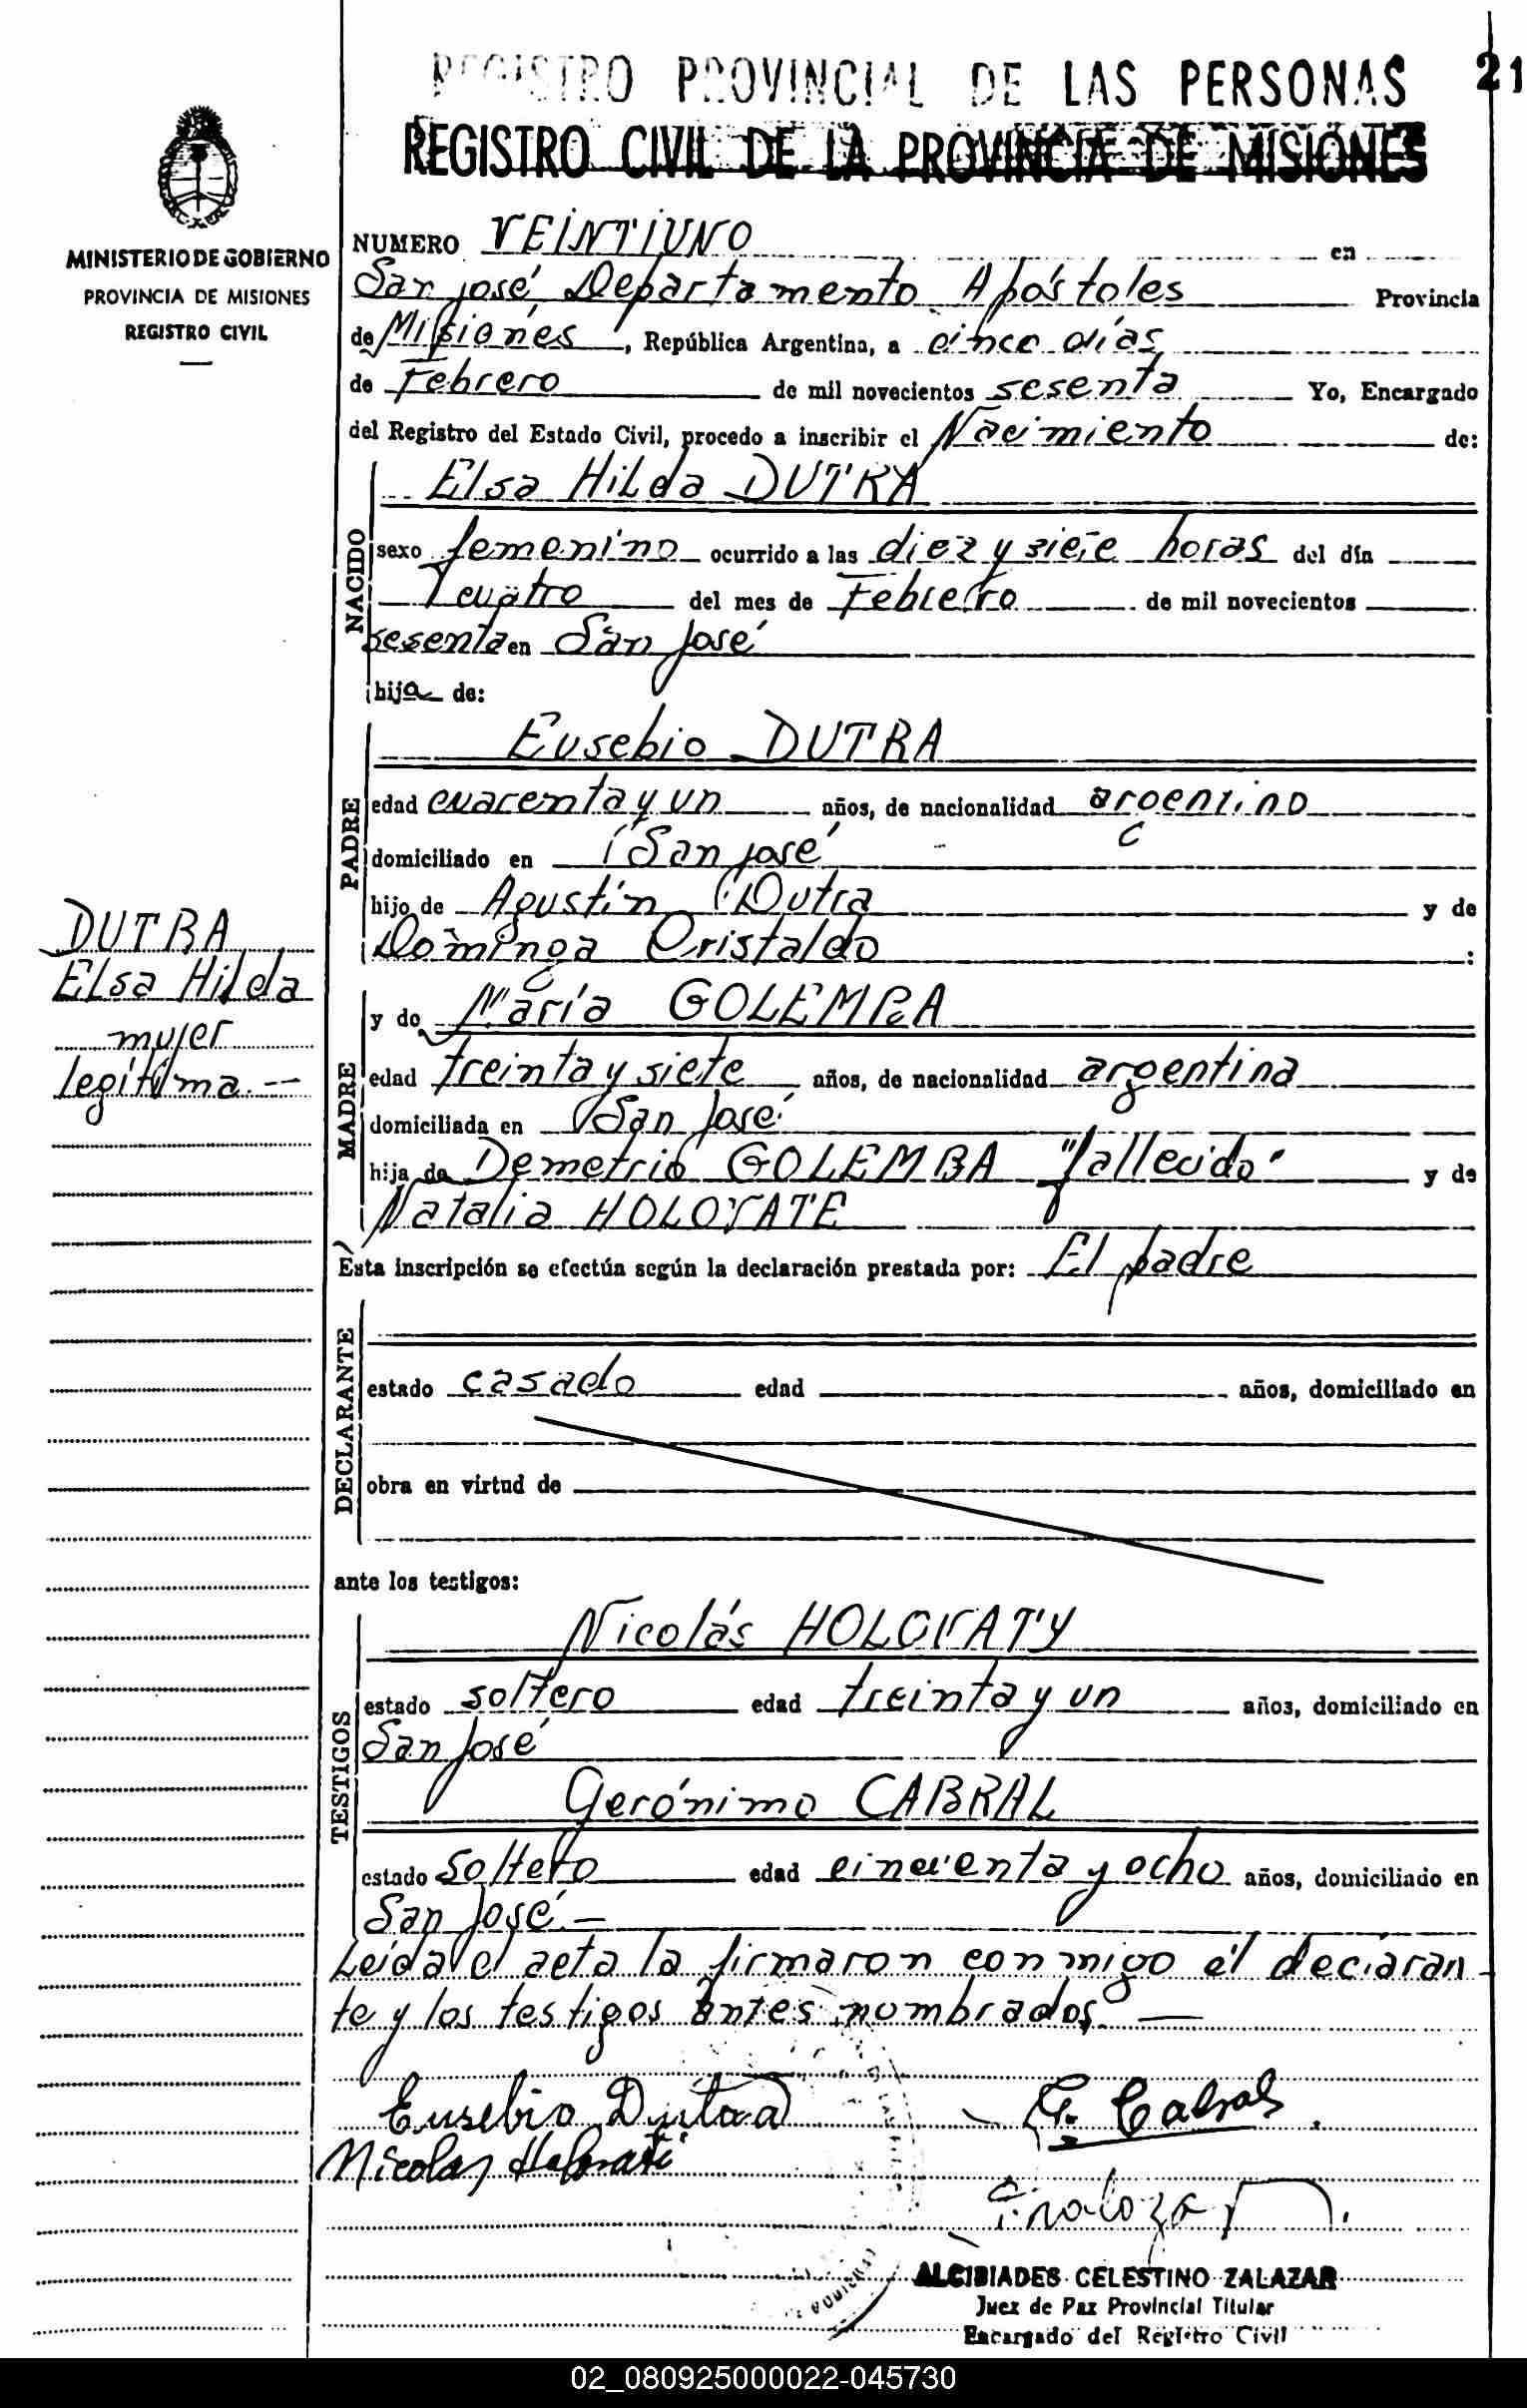 REGISTRO PROVINCIAL DE LAS PERSONAS 21
REGISTRO CIVIL DE LA PROVINCIA DE MISIONES
MINISTERIO DE GOBIERNO
PROVINCIA DE MISIONES
REGISTRO CIVIL
NUMERO VEINTIUNO en
San José Departamento Apóstoles Provincia
de Misiones, República Argentina, a cinco días
de Febrero de mil novecientos sesenta Yo, Encargado
del Registro del Estado Civil, procedo a inscribir el Nacimiento de:
NACIDO
Elsa Hilda DUTRA
sexo femenino ocurrido a las diez y siete horas del día
cuatro del mes de Febrero de mil novecientos
sesenta en San José
hija de:
PADRE
Eusebio DUTRA
edad cuarenta y un años, de nacionalidad argentino
domiciliado en San José
hijo de Agustín Dutra y de
Dominga Cristaldo :
DUTRA
Elsa Hilda
mujer
legítima.--
MADRE
y de María GOLEMBA
edad treinta y siete años, de nacionalidad argentina
domiciliada en San José
hija de Demetrio GOLEMBA "fallecido" y de
Natalia HOLOVATE
Esta inscripción se efectúa según la declaración prestada por: El padre
DECLARANTE
estado casado edad años, domiciliado en
obra en virtud de
ante los testigos:
TESTIGOS
Nicolás HOLOVATY
estado soltero edad treinta y un años, domiciliado en
San José
Gerónimo CABRAL
estado soltero edad cincuenta y ocho años, domiciliado en
San José.—
Leída el acta la firmaron conmigo el declaran-
te y los testigos antes nombrados.—
Eusebio Dutra G. Cabral
Nicolas Holovati
ALCIBIADES CELESTINO ZALAZAR
Juez de Paz Provincial Titular
Encargado del Registro Civil
02_080925000022-045730